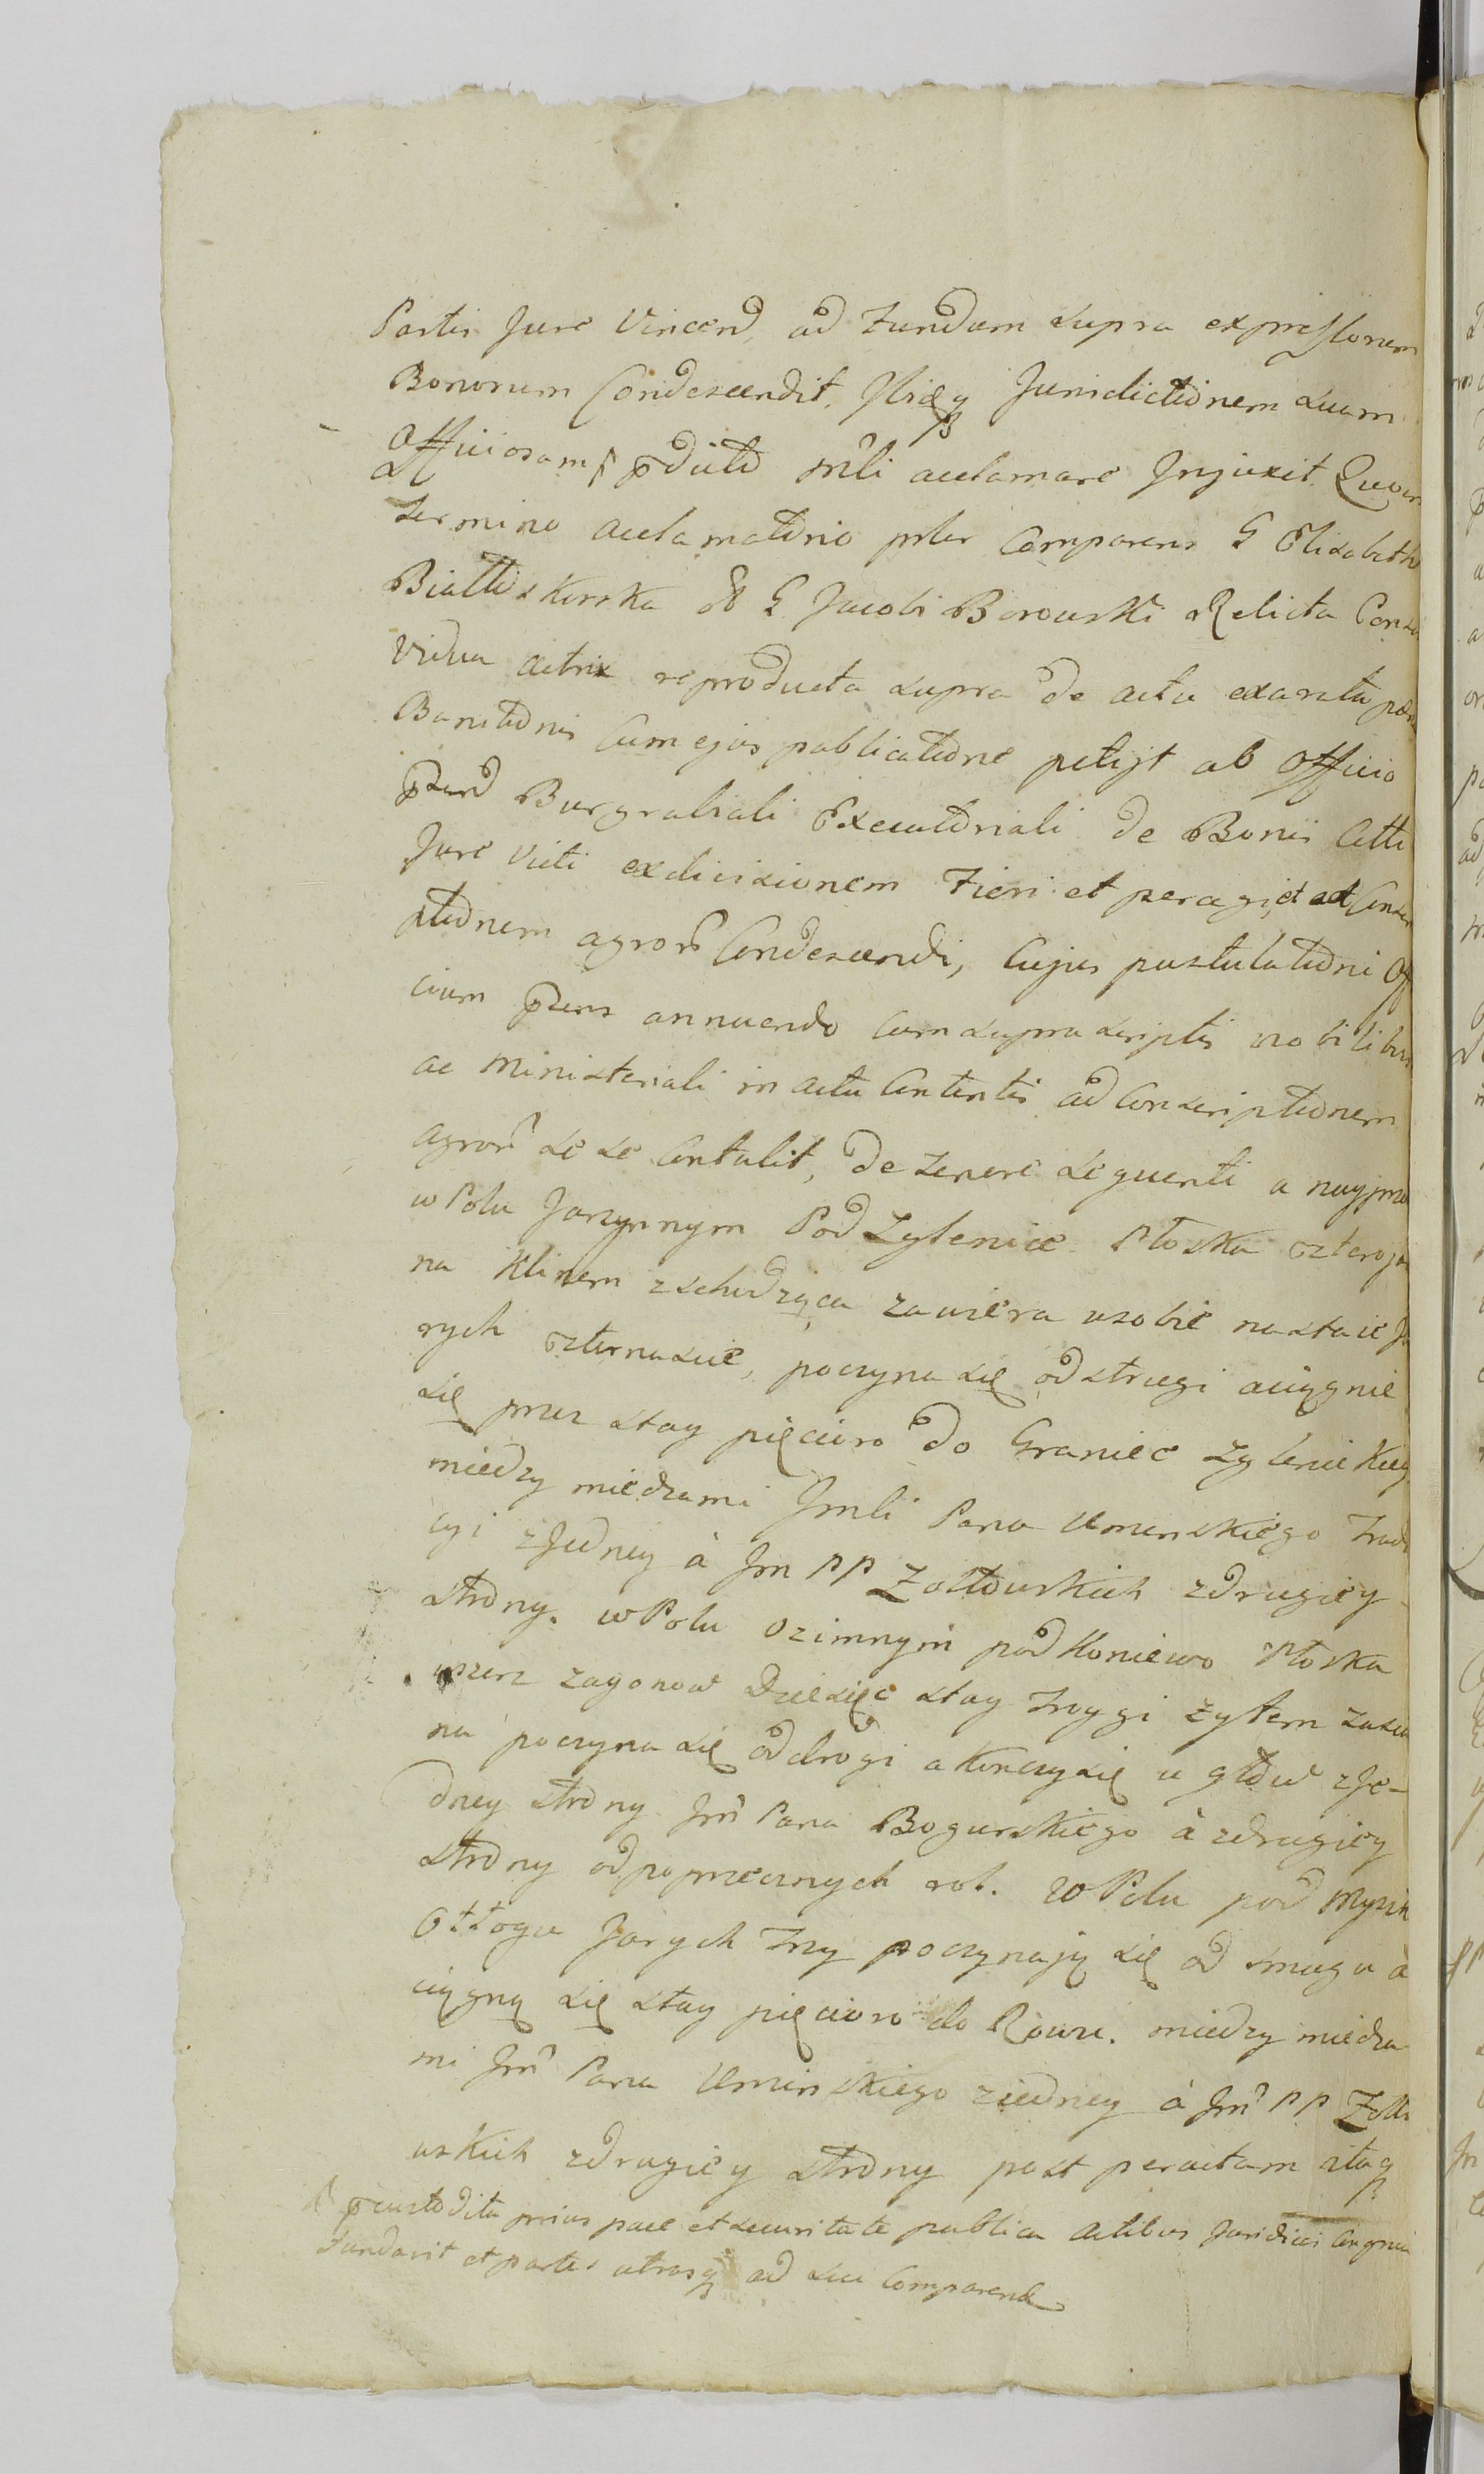 Partis Jure Vincend, ad Fundum supra expressorum
Bonorum Condescendit, Ibiq Jurisdictionem suam
Officiosam p pditu mli acclamare Injunxit. Quo
Termino acclamationis pter Comparens G Elisabeth
Białłoskurska G Jacobi Borowski Relicta Cons
Vidua actrix reproducta supra de actu exarata pœna
Banitionis Cum ejus publicatione petijt ab Officio
pnti Burgrabiali Executoriali de Bonis Citti
Jure Victi exdivisionem Fieri et peragi, et ad Conscri
ptionem agror Condescendi, Cujus postulationi Offi
cium pns annuendo Cum supra scriptis nobilibus
ac Ministeriali in actu Contentis ad Conscriptionem
Agror se se Contulit, de tenore sequenti a nayprzo
w Polu Jarzynnym Pod Zylenice Płoska czteroja
na klinem zschodząca zawiera wsobie nastaie Ja
rych czternascie, poczyna się od strugi aciągnie
się przez stay pięcioro do Granice Zylenickiey
miedzy miedzami Jmci Pana Uminskiego Trad
cyi zJedney à Jm PP Zołtowskich zdrugiey
strony. w Polu Ozimnym pod Koniewo Płoska
wszerz zagonow Dziesięc stay Troygi żytem zasia
na poczyna się od drogi akonczy się u głow zJe-
dney strony Jm Pana Bogurskiego à zdrugiey
strony odpoprzecznych rol. w Polu pod Myszk
Ottogu Jarych Trzy poczynają się od smugu à
ciągną się stay pięcioro do Rowu. miedzy miedza
mi Jm Pana Uminskiego ziedney à Jm PP Zołto
wskich zdrugiey strony post peractam itaq
pcustodita prius pace et securitate publica Actibus Juridicis Congrua
Fundavit et partes utrasq ad sui Comparend